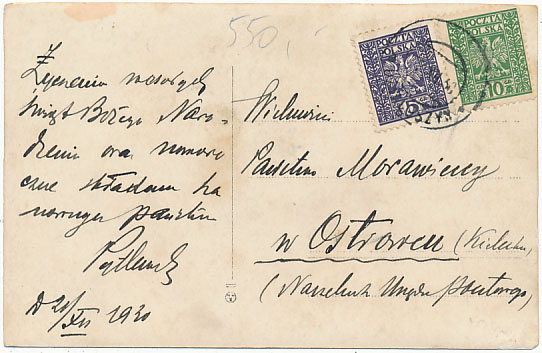 550,-
Życzenia wesołych
świąt Bożego Naro-
dzenia oraz noworo
czne składam Sza
nownym państwu
D 20/XII 1930
POCZTA
POLSKA
5
POCZTA
POLSKA
10
Wielmożni
Państwo Morawiccy
w Ostrowcu (Kieleckim)
(Naczelnik Urzędu Pocztowego)